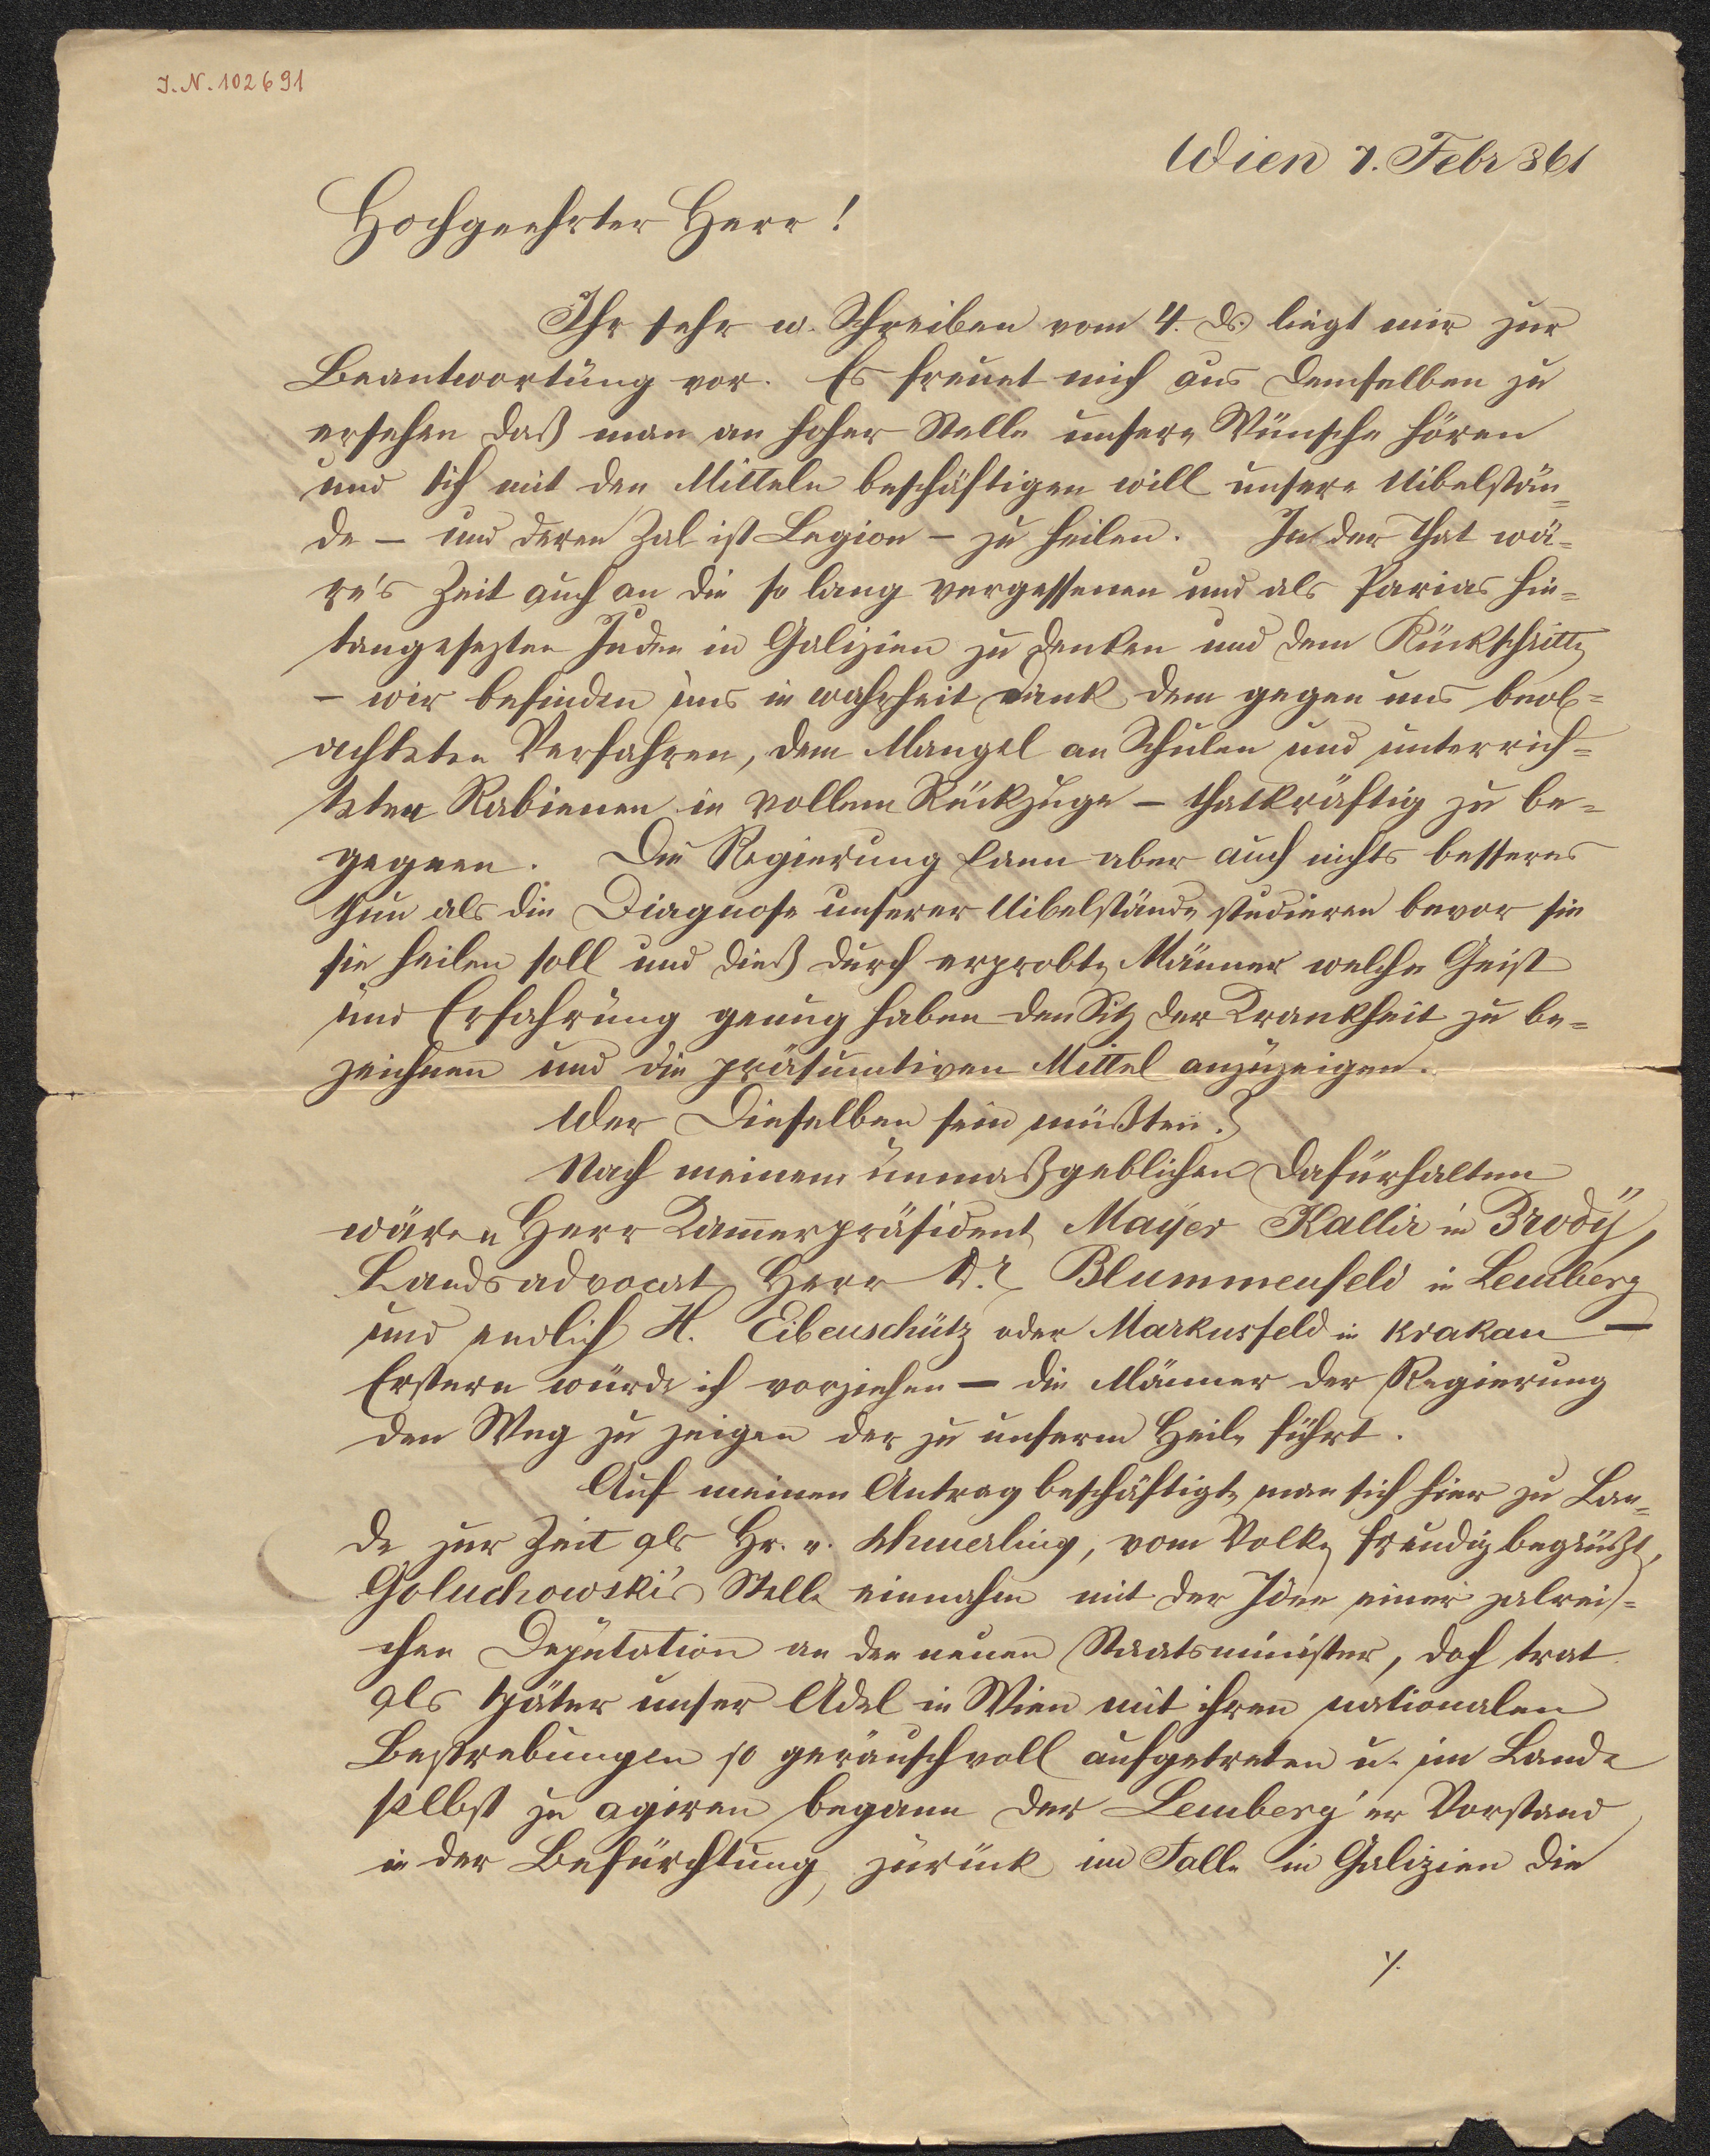 J.N. 102691
Wien 7. Febr 861
Hochgeehrter Herr!
Ihr sehr w. Schreiben vom 4. ds. liegt mir zur
Beantwortung vor. Es freuet mich aus demselben zu
ersehen daß man an hoher Stelle unsere Wünsche hören
und sich mit den Mitteln beschäftigen will unsere Uibelstän=
de – und deren Zal ist Legion – zu heilen. In der That wä=
re's Zeit auch an die so lang vergessenen und als Parias hin=
tangesezten Juden in Galizien zu denken und dem Rückschritte
– wir befinden uns in wahrheit dank dem gegen uns beob=
achteten Verfahren, dem Mangel an Schulen und unterrich=
teten Rabienen in vollem Rückzuge – thatkräftig zu be=
gegnen. Die Regierung kann aber auch nichts besseres
thun als die Diagnose unserer Uibelstände studieren bevor sie
sie heilen soll und dieß durch erprobte Männer welche Geist
und Erfahrung genug haben den Sitz der Krankheit zu be=
zeichnen und die präsumtiven Mittel anzuzeigen.
Wer Dieselben sein müßten?
Nach meinem unmaßgeblichen Dafürhalten
wären Herr Kammerpräsident Mayer Kallir in Brody,
Landsadvocat Herr Dr. Blummenfeld in Lemberg
und endlich H. Eibenschütz oder Markusfeld in Krakau –
Erstern würde ich vorziehen – die Männer der Regierung
den Weg zu zeigen der zu unserm Heile führt.
Auf meinen Antrag beschäftigte man sich hier zu Lan=
de zur Zeit als Hr. v. Schmerling, vom Volke freudig begrüßt,
Goluchowski's Stelle einnahm mit der Idee einer zalrei=
chen Deputation an den neuen Staatsminister, doch trat
als später unser Adel in Wien mit ihren nationalen
Bestrebungen so geräuschvoll aufgetreten u. im Lande
selbst zu agiren begann der Lemberg'er Vorstand
in der Befürchtung, zurück im Falle in Galizien die
./.